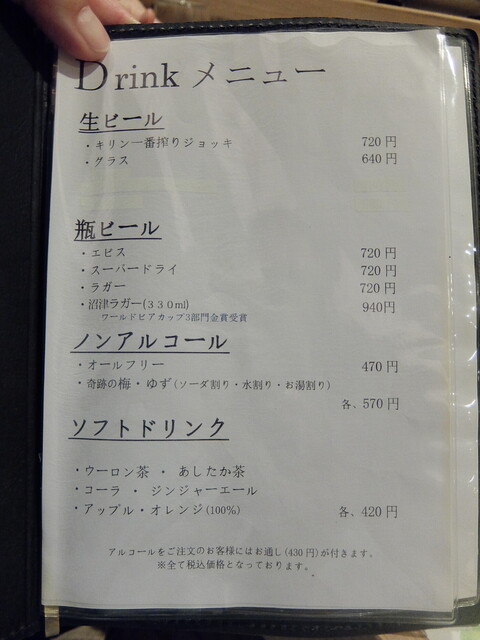 Drink メニュー
生ビール
・キリン一番搾りジョッキ 720 円
・グラス 640 円
瓶ビール
・エビス 720 円
・スーパードライ 720 円
・ラガー 720 円
・沼津ラガー(330ml) 940円
ワールドビアカップ3部門金賞受賞
ノンアルコール
・オールフリー 470 円
・奇跡の梅・ゆず(ソーダ割り・水割り・お湯割り)
各、570 円
ソフトドリンク
・ウーロン茶 ・ あしたか茶
・コーラ ・ ジンジャーエール
・アップル・オレンジ(100%) 各、420 円
アルコールをご注文のお客様にはお通し(430円)が付きます。
※全て税込価格となっております。